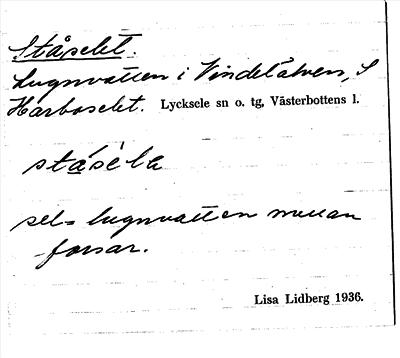 Ståselet.
Lugnvatten i Vindelälven, S
Harboselet. Lycksele sn o. tg, Västerbottens l.
stáséla
sel = lugnvatten mellan
forsar.
Lisa Lidberg 1936.